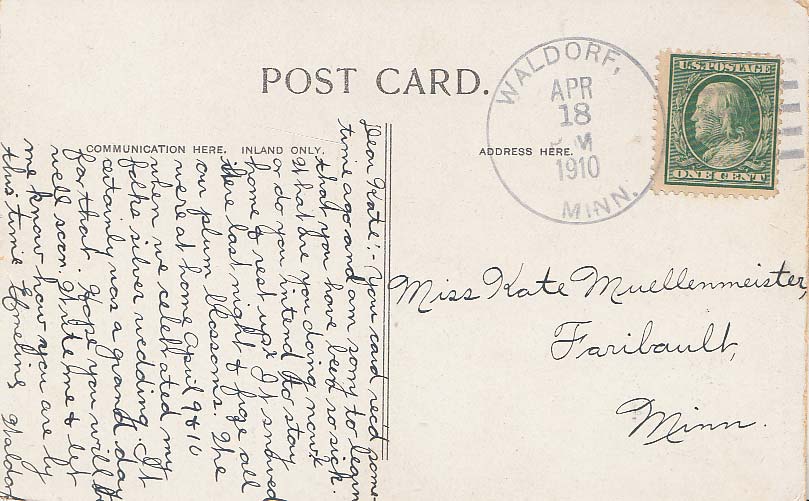 POST CARD.
COMMUNICATION HERE. INLAND ONLY.
ADDRESS HERE.
WALDORF,
APR
18
M
1910
MINN.
U.S. POSTAGE
ONE CENT
Miss Kate Muellenmeister,
Faribault,
Minn.
Dear Kate:- You card rec'd some
time ago and am sorry to begin
that you have been so sick.
What are you doing now?
or do you intend to stay
home & rest up? It snowed
here last night & froze all
our plum blossoms. We
were at home April 9 & 10
when we celebrated my
folks silver wedding. It
certainly was a grand day
for that. Hope you will be
well soon. Write me & let
me know how you are by
this time Emeline, Waldorf